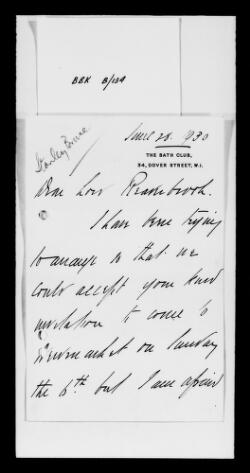 BBK B/124
Stanley Bruce
June 28. 1930
THE BATH CLUB,
34, DOVER STREET, W.1.
Dear Lord Beaverbrook.
I have been trying
to arrange so that we
could accept your kind
invitation to come to
Newmarket on Sunday
the 6th. but I am afraid